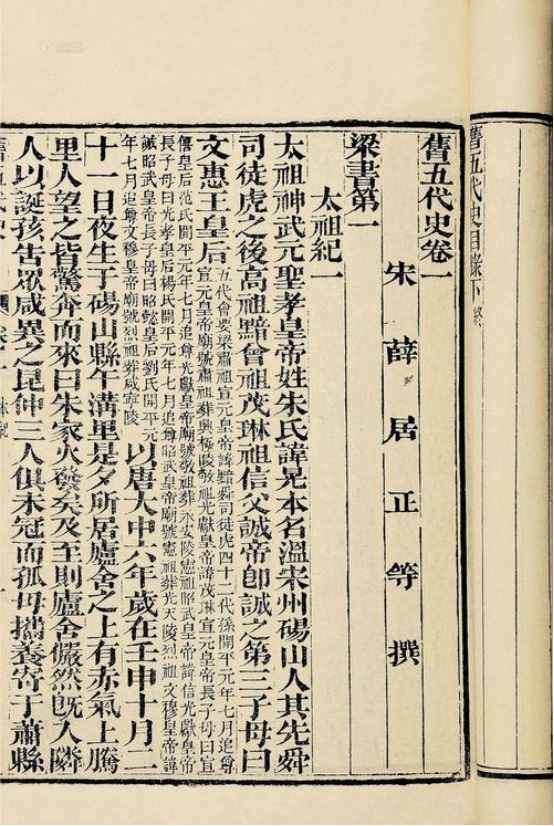 舊五代史目錄下終
舊五代史卷一
宋薛居正等撰
梁書第一
太祖紀一
太祖神武元聖孝皇帝姓朱氏諱晃本名溫宋州碭山人其先舜
司徒虎之後高祖黯曾祖茂琳祖信父誠帝即誠之第三子母曰
文惠王皇后
五代會要梁肅祖宣元皇帝諱黯舜司徒虎四十二代孫開平元年七月追尊
宣元皇帝廟號肅祖葬興極陵敬祖光獻皇帝諱茂琳宣元皇帝長子母曰宣
僖皇后范氏開平元年七月追尊光獻皇帝廟號敬祖葬永安陵憲祖昭武皇帝諱信光獻皇帝
長子母曰光孝皇后楊氏開平元年七月追尊昭武皇帝廟號憲祖葬光天陵烈祖文穆皇帝諱
誠昭武皇帝長子母曰昭懿皇后劉氏開平元
年七月追尊文穆皇帝廟號烈祖葬咸寧陵
以唐大中六年歲在壬申十月二
十一日夜生于碭山縣午溝里是夕所居廬舍之上有赤氣上騰
里人望之皆驚奔而來曰朱家火發矣及至則廬舍儼然既入隣
人以誕孩告眾咸異之昆仲三人俱未冠而孤母攜養寄于蕭縣